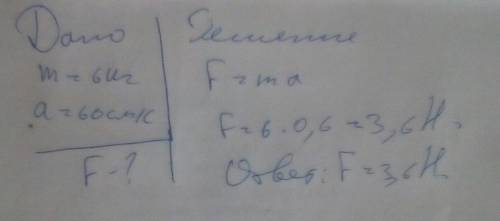 Дано
m=6кг
a=60см/с
F-?
Решение
F=ma
F=6·0,6=3,6Н.
Ответ: F=3,6Н.